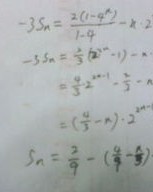 -3Sn = 2(1-4ⁿ)/(1-4) - n·2
-3Sn = 2/3(2²ⁿ-1) - n·
= 4/3·2²ⁿ⁻¹ - 2/3 - n
= (4/3 - n)·2²ⁿ⁻¹
Sn = 2/9 - (4/9 - n/3)